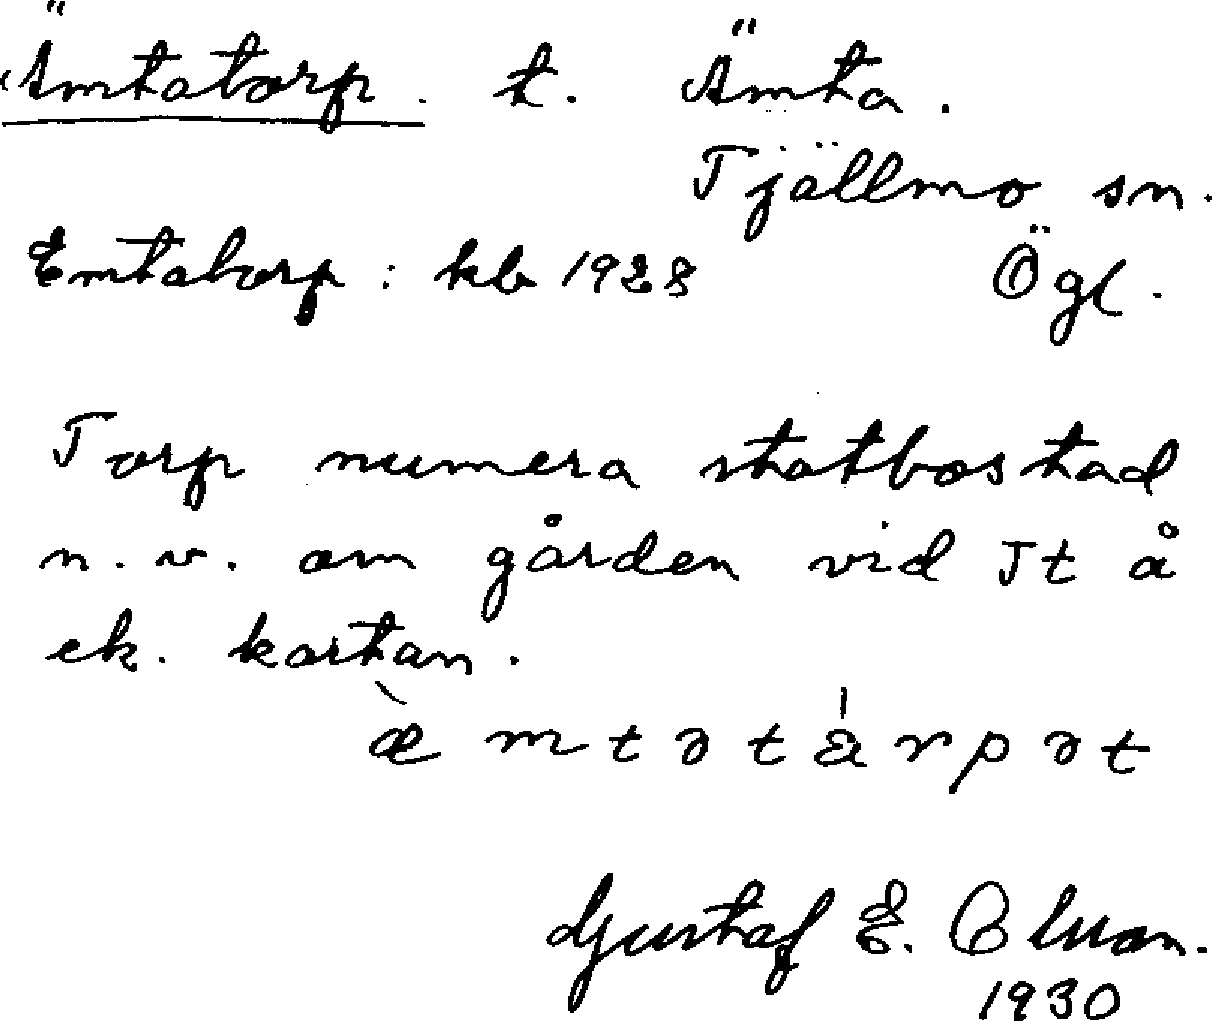 Ämtatorp. t. Ämta.
Tjällmo sn.
Emtatorp: kb 1928 Ögl.
Torp numera statbostad
n.v. om gården vid Tt å
ek. kartan.
æ̀mtətárpət
Gustaf E. Olsson.
1930